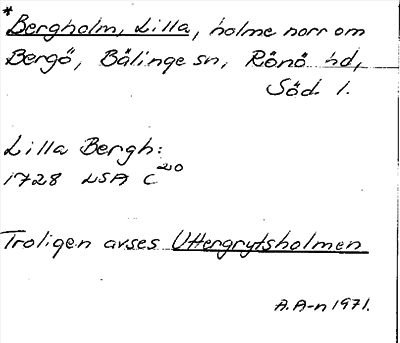 * Bergholm, Lilla, holme norr om
Bergö, Bälinge sn, Rönö hd,
Söd. l.
Lilla Bergh:
1728 LSA C20
Troligen avses Uttergrytsholmen
A.A-n 1971.